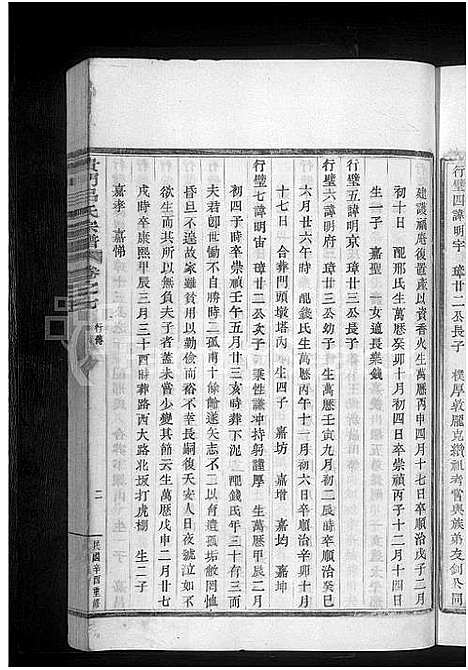 行璧四諱明宇 璋廿二公長子 樸厚敦龐克纘祖考嘗與族弟友劍公同
建護福庵復置產以資香火生萬曆丙申四月十七日卒順治戊子二月
初十日 配邢氏生萬曆癸卯十月初四日卒崇禎丙子十二月十四日
生一子 嘉聖 一女適長樂錢
行璧五諱明京 璋廿三公長子
行璧六諱明府 璋廿三公幼子 生萬曆壬寅九月初二辰時卒順治癸巳
六月廿六午時 配錢氏生萬曆丙午十二月初六日卒順治辛卯十月
十七日 合葬門頭墩塔內 生四子 嘉坊 嘉增 嘉均 嘉坤
行璧七諱明宙 璋廿二公次子 秉性謙沖持躬謹厚 生萬曆甲辰二月
初四子時卒崇禎壬午五月廿三亥時葬下泥 配錢氏年三十有三而
夫君卽世慟不欲生時二孤甫十餘齡遂矢志不二有遺孤垢敝罔恤
不自逸豫故家雖貧以勤儉而裕不幸長嗣復夭安人日夜號泣如不
欲生所以無負夫子者蓋未嘗少變其節云生萬曆戊申二月廿七
戌時卒康熙甲辰三月三十酉時葬路西大路北坂打虎棚 生二子
嘉孝 嘉悌
門馬氏宗譜 卷之七 行傳 二 民國辛酉重修